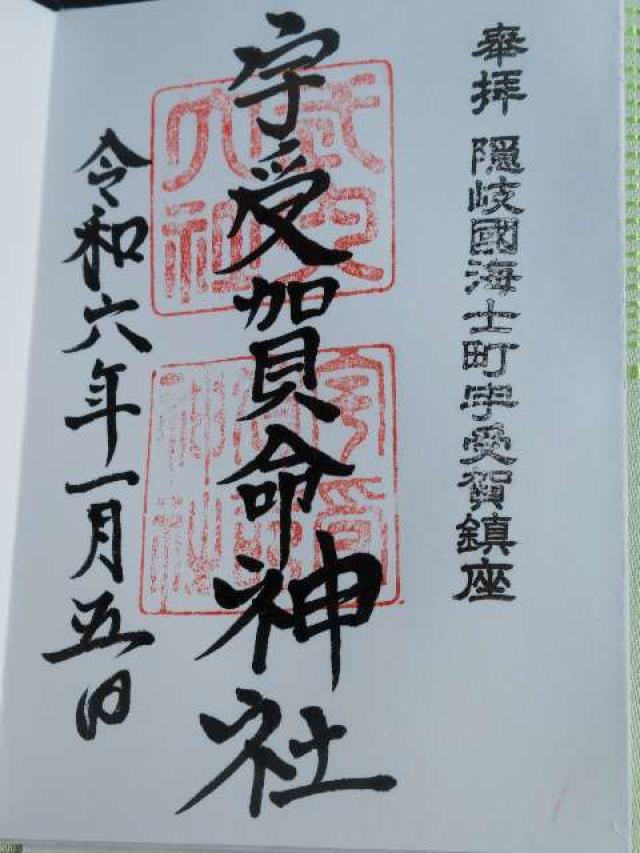 奉拝 隠岐國海士町宇受賀鎮座
宇受賀命神社
式内
大社
令和六年一月五日